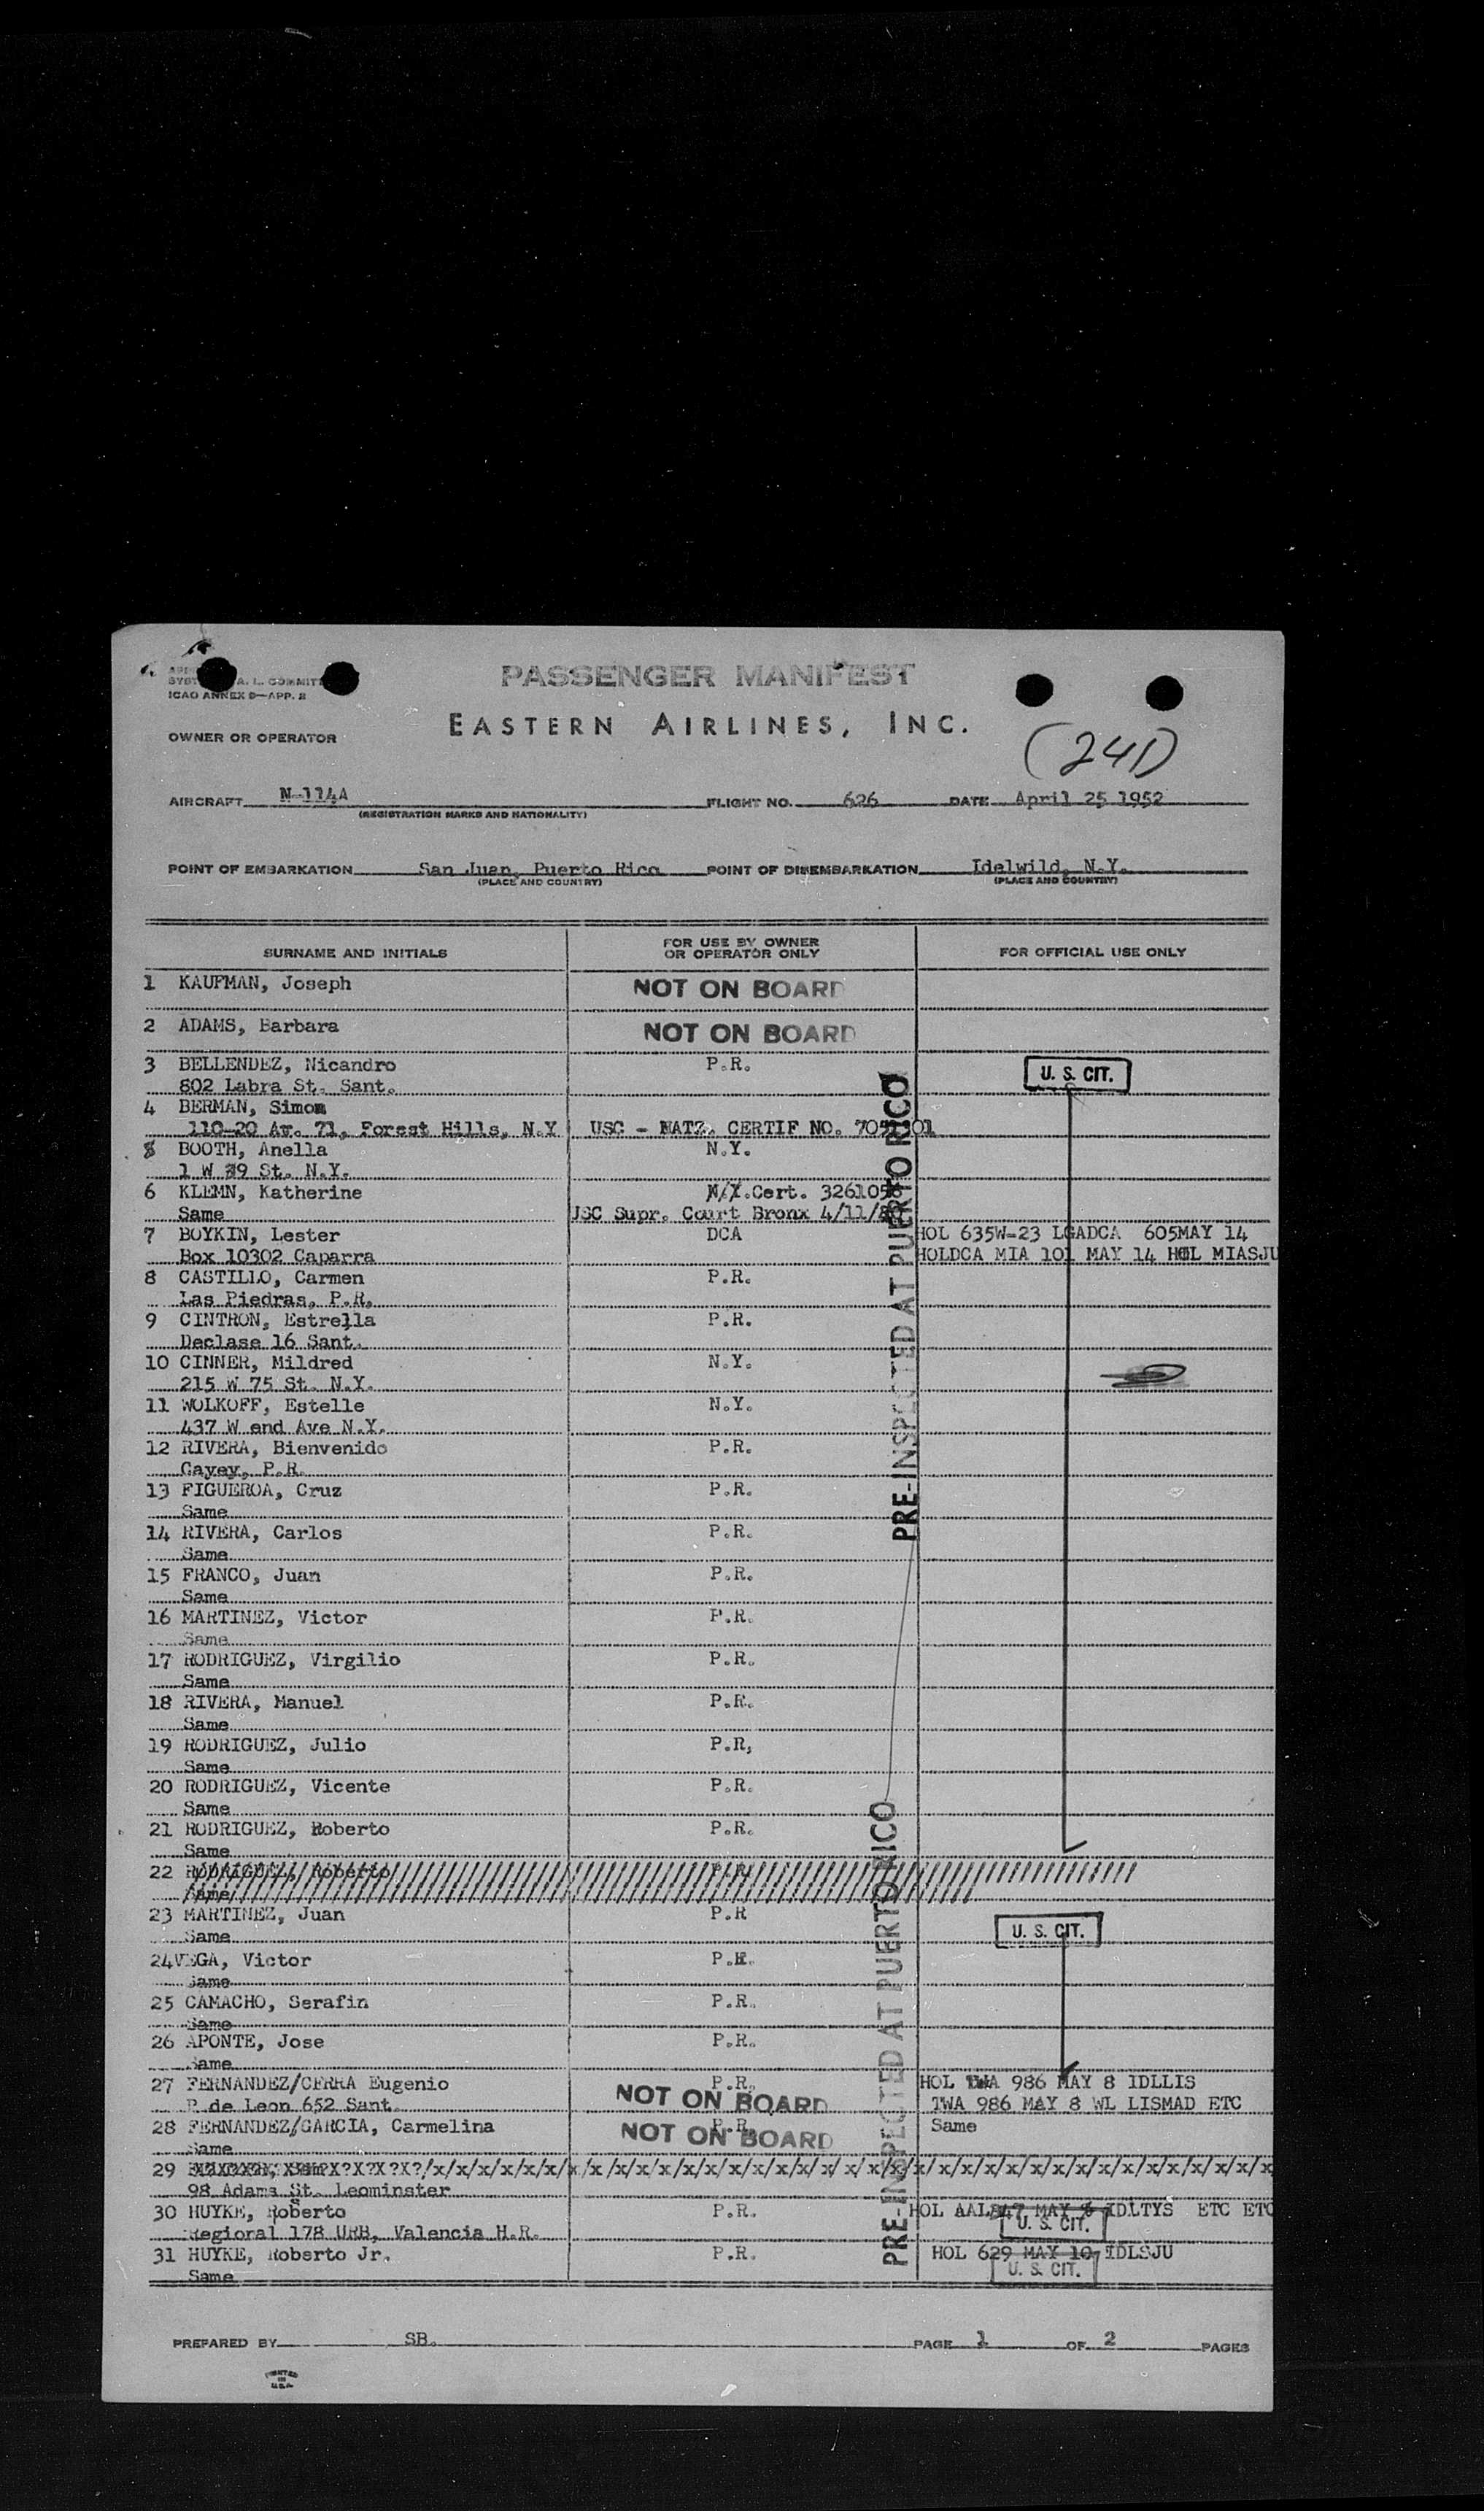 PASSENGER MANIFEST
A. L. COMMITT
ICAO ANNEX 9—APP. 2
EASTERN AIRLINES, INC.
OWNER OR OPERATOR
(241)
AIRCRAFT N-114A FLIGHT NO. 626 DATE April 25 1952
(REGISTRATION MARKS AND NATIONALITY)
POINT OF EMBARKATION San Juan, Puerto Rico POINT OF DISEMBARKATION Idelwild, N.Y.
(PLACE AND COUNTRY) (PLACE AND COUNTRY)
SURNAME AND INITIALS FOR USE BY OWNER OR OPERATOR ONLY FOR OFFICIAL USE ONLY
1 KAUFMAN, Joseph NOT ON BOARD
2 ADAMS, Barbara NOT ON BOARD
3 BELLENDEZ, Nicandro P.R. U. S. CIT.
802 Labra St. Sant.
4 BERMAN, Simon
110-20 Av. 71, Forest Hills, N.Y USC - NATZ. CERTIF NO.
5 BOOTH, Anella N.Y.
1 W 79 St. N.Y.
6 KLEMN, Katherine N.Y. Cert.
Same USC Supr. Court Bronx
7 BOYKIN, Lester DCA HOL 635W-23 LGADCA 605MAY 14
Box 10302 Caparra HOLDCA MIA 101 MAY 14 HOL MIASJU
8 CASTILLO, Carmen P.R.
Las Piedras, P.R.
9 CINTRON, Estrella P.R.
Declase 16 Sant.
10 CINNER, Mildred N.Y.
215 W 75 St. N.Y.
11 WOLKOFF, Estelle N.Y.
437 W end Ave N.Y.
12 RIVERA, Bienvenido P.R.
Cayey, P.R.
13 FIGUEROA, Cruz P.R.
Same
14 RIVERA, Carlos P.R.
Same
15 FRANCO, Juan P.R.
Same
16 MARTINEZ, Victor P.R.
Same
17 RODRIGUEZ, Virgilio P.R.
Same
18 RIVERA, Manuel P.R.
Same
19 RODRIGUEZ, Julio P.R,
Same
20 RODRIGUEZ, Vicente P.R.
Same
21 RODRIGUEZ, Roberto P.R.
Same
22 RODRIGUEZ, Roberto P.R.
Same
23 MARTINEZ, Juan P.R U. S. CIT.
Same
24 VEGA, Victor P.R.
Same
25 CAMACHO, Serafin P.R.
Same
26 APONTE, Jose P.R.
Same
27 FERNANDEZ/CERRA Eugenio P.R. HOL TWA 986 MAY 8 IDLLIS
P. de Leon 652 Sant. NOT ON BOARD TWA 986 MAY 8 WL LISMAD ETC
28 FERNANDEZ/GARCIA, Carmelina P.R. Same
Same NOT ON BOARD
29
98 Adams St. Leominster
30 HUYKE, Roberto P.R. HOL AAL 847 MAY IDLTYS ETC ETC
Regional 178 URB, Valencia H.R. U. S. CIT.
31 HUYKE, Roberto Jr. P.R. HOL 629 MAY 10 IDLSJU
Same U. S. CIT.
PRE-INSPECTED AT PUERTO RICO
PRE-INSPECTED AT PUERTO RICO
PREPARED BY SB. PAGE 1 OF 2 PAGES
PRINTED
IN
U.S.A.